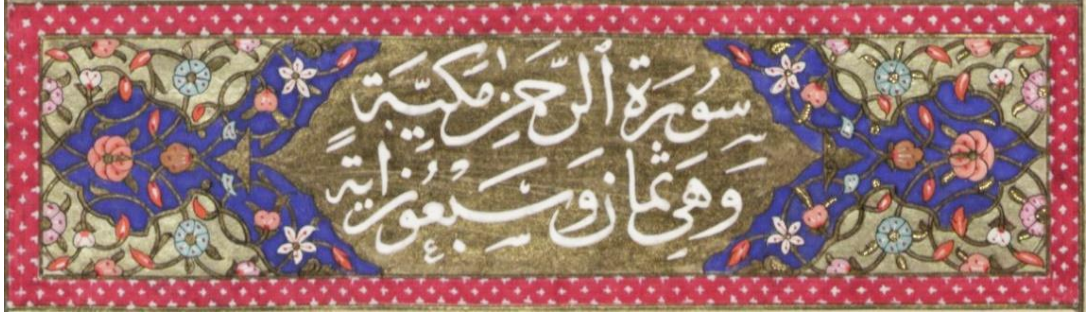 سُورَةُ ٱلرَّحْمٰنِ مَكِّيَّةٌ
وَهِيَ ثَمَانٌ وَسَبْعُونَ اٰيَةً